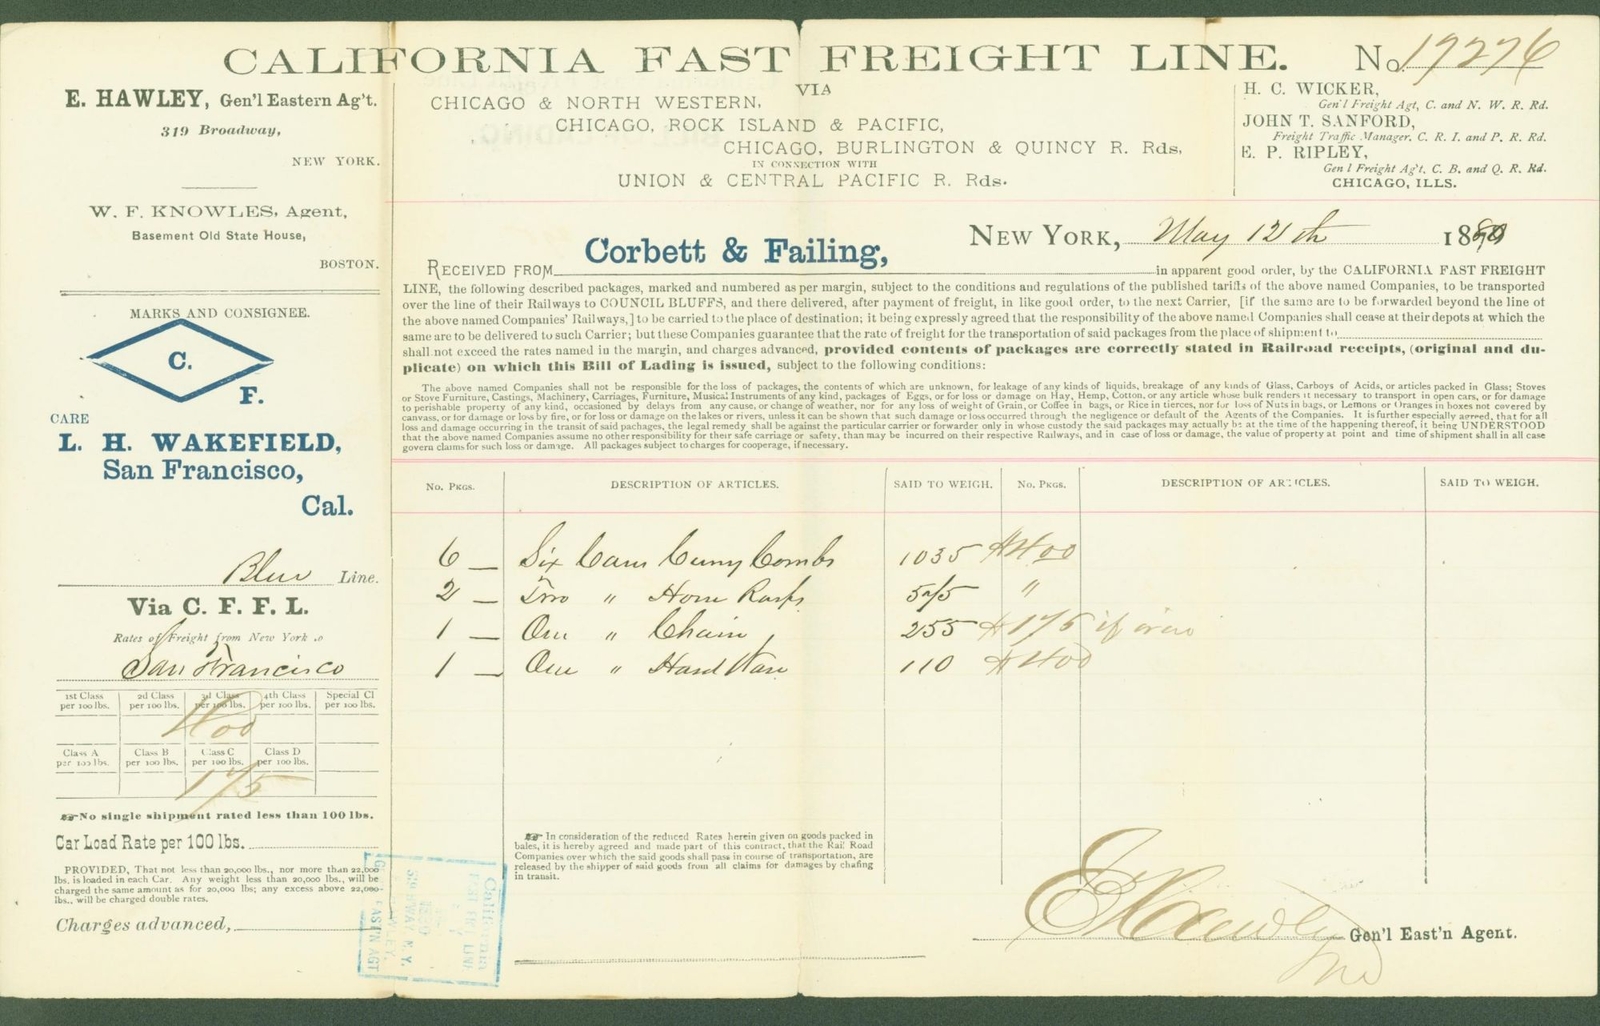 CALIFORNIA FAST FREIGHT LINE. No. 17276
E. HAWLEY, Gen'l Eastern Ag't.
319 Broadway,
NEW YORK.
W. F. KNOWLES, Agent,
Basement Old State House,
BOSTON.
VIA
CHICAGO & NORTH WESTERN,
CHICAGO, ROCK ISLAND & PACIFIC,
CHICAGO, BURLINGTON & QUINCY R. Rds,
IN CONNECTION WITH
UNION & CENTRAL PACIFIC R. Rds.
H. C. WICKER,
Gen'l Freight Agt, C. and N. W. R. Rd.
JOHN T. SANFORD,
Freight Traffic Manager, C. R. I. and P. R. Rd.
E. P. RIPLEY,
Gen'l Freight Ag't, C. B. and Q. R. Rd.
CHICAGO, ILLS.
MARKS AND CONSIGNEE.
C.
F.
CARE
L. H. WAKEFIELD,
San Francisco,
Cal.
Blue Line.
Via C. F. F. L.
Rates of Freight from New York to
San Francisco
1st Class per 100 lbs. 2d Class per 100 lbs. 3d Class per 100 lbs. 4th Class per 100 lbs. Special Cl per 100 lbs.
400
Class A per 100 lbs. Class B per 100 lbs. Class C per 100 lbs. Class D per 100 lbs.
175
☞No single shipment rated less than 100 lbs.
Car Load Rate per 100 lbs.
PROVIDED, That not less than 20,000 lbs., nor more than 22,000
lbs. is loaded in each Car. Any weight less than 20,000 lbs., will be
charged the same amount as for 20,000 lbs; any excess above 22,000
lbs., will be charged double rates.
Charges advanced,
NEW YORK, May 12th 1880
RECEIVED FROM Corbett & Failing, in apparent good order, by the CALIFORNIA FAST FREIGHT
LINE, the following described packages, marked and numbered as per margin, subject to the conditions and regulations of the published tariffs of the above named Companies, to be transported
over the line of their Railways to COUNCIL BLUFFS, and there delivered, after payment of freight, in like good order, to the next Carrier, [if the same are to be forwarded beyond the line of
the above named Companies' Railways,] to be carried to the place of destination; it being expressly agreed that the responsibility of the above named Companies shall cease at their depots at which the
same are to be delivered to such Carrier; but these Companies guarantee that the rate of freight for the transportation of said packages from the place of shipment to
shall not exceed the rates named in the margin, and charges advanced, provided contents of packages are correctly stated in Railroad receipts, (original and du-
plicate) on which this Bill of Lading is issued, subject to the following conditions:
The above named Companies shall not be responsible for the loss of packages, the contents of which are unknown, for leakage of any kinds of liquids, breakage of any kinds of Glass, Carboys of Acids, or articles packed in Glass; Stoves
or Stove Furniture, Castings, Machinery, Carriages, Furniture, Musical Instruments of any kind, packages of Eggs, or for loss or damage on Hay, Hemp, Cotton, or any article whose bulk renders it necessary to transport in open cars, or for damage
to perishable property of any kind, occasioned by delays from any cause, or change of weather, nor for any loss of weight of Grain, or Coffee in bags, or Rice in tierces, nor for loss of Nuts in bags, or Lemons or Oranges in boxes not covered by
canvass, or for damage or loss by fire, or for loss or damage on the lakes or rivers, unless it can be shown that such damage or loss occurred through the negligence or default of the Agents of the Companies. It is further especially agreed, that for all
loss and damage occurring in the transit of said packages, the legal remedy shall be against the particular carrier or forwarder only in whose custody the said packages may actually be at the time of the happening thereof, it being UNDERSTOOD
that the above named Companies assume no other responsibility for their safe carriage or safety, than may be incurred on their respective Railways, and in case of loss or damage, the value of property at point and time of shipment shall in all case
govern claims for such loss or damage. All packages subject to charges for cooperage, if necessary.
No. PKGS. DESCRIPTION OF ARTICLES. SAID TO WEIGH. No. PKGS. DESCRIPTION OF ARTICLES. SAID TO WEIGH.
6 — Six Cases Curry Combs 1035 400
2 — Two " Horse Rasps 525 "
1 — One " Chain, 255 175 if iron
1 — One " Hard Ware 110 400
☞ In consideration of the reduced Rates herein given on goods packed in
bales, it is hereby agreed and made part of this contract, that the Rail Road
Companies over which the said goods shall pass in course of transportation, are
released by the shipper of said goods from all claims for damages by chafing
in transit.
California
FAST FREIGHT LINE
BROADWAY N. Y.
GEN'L EASTERN AGT
E Hawley Gen'l East'n Agent.